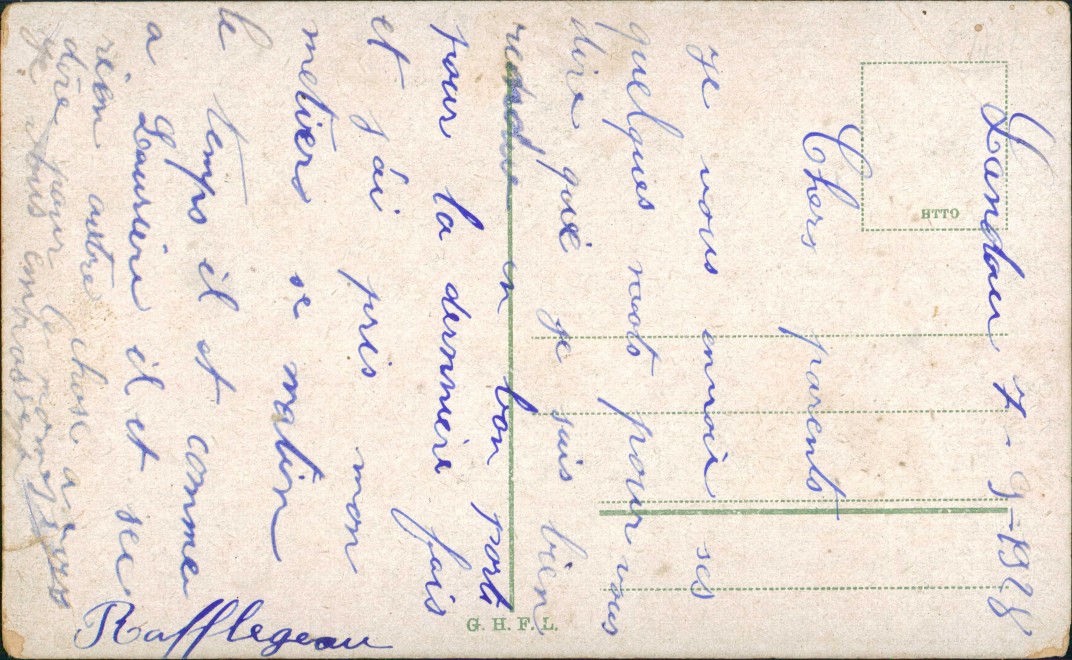 Landau 7-9-1928
Chers parents
je vous envoie ses
quelques mots pour vous
dire que je suis bien
rendue en bon port
pour la dernniere fois
et j'ai pris mon
metiers se matin
le temps il et comme
a Lauriere il et sec
rien autre chose a vous
dire pour le moment
je vous embrassent
Rafflegeau
HTTO
G. H. F. L.